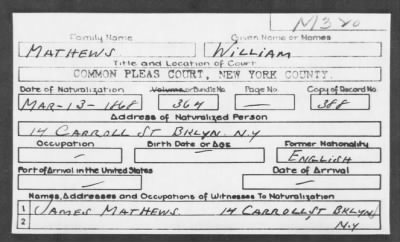 M320
Family Name Given Name or Names
MATHEWS WILLIAM
Title and Location of Court
COMMON PLEAS COURT, NEW YORK COUNTY.
Date of Naturalization Volume or Bundle No. Page No. Copy of Record No.
MAR-13-1868 364 — 388
Address of Naturalized Person
14 CARROLL ST BKLYN. N.Y
Occupation Birth Date or Age Former Nationality
— — ENGLISH
Port of Arrival in the United States Date of Arrival
— —
Names, Addresses and Occupations of Witnesses To Naturalization
1 JAMES MATHEWS 14 CARROLL ST BKLYN,
2 N.Y